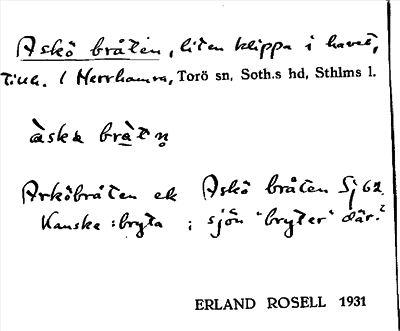 Askö bråten, liten klippa i havet,
till h. / Herrhamra, Torö sn, Soth.s hd, Sthlms l.
àskɷ bràtn̥
Arköbråten ek Askö bråten Sj 62
Kanske :bryta ; sjön "bryter" där?
ERLAND ROSELL 1931